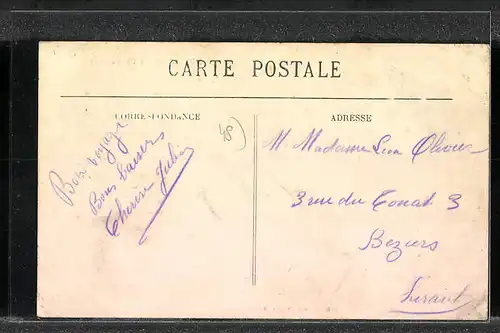 CARTE POSTALE
CORRESPONDANCE
ADRESSE
48)
Bon voyage
Bons baisers
Therese Julia
M. Madame Leon Olivier
3 rue du Tonat 3
Beziers
Herault